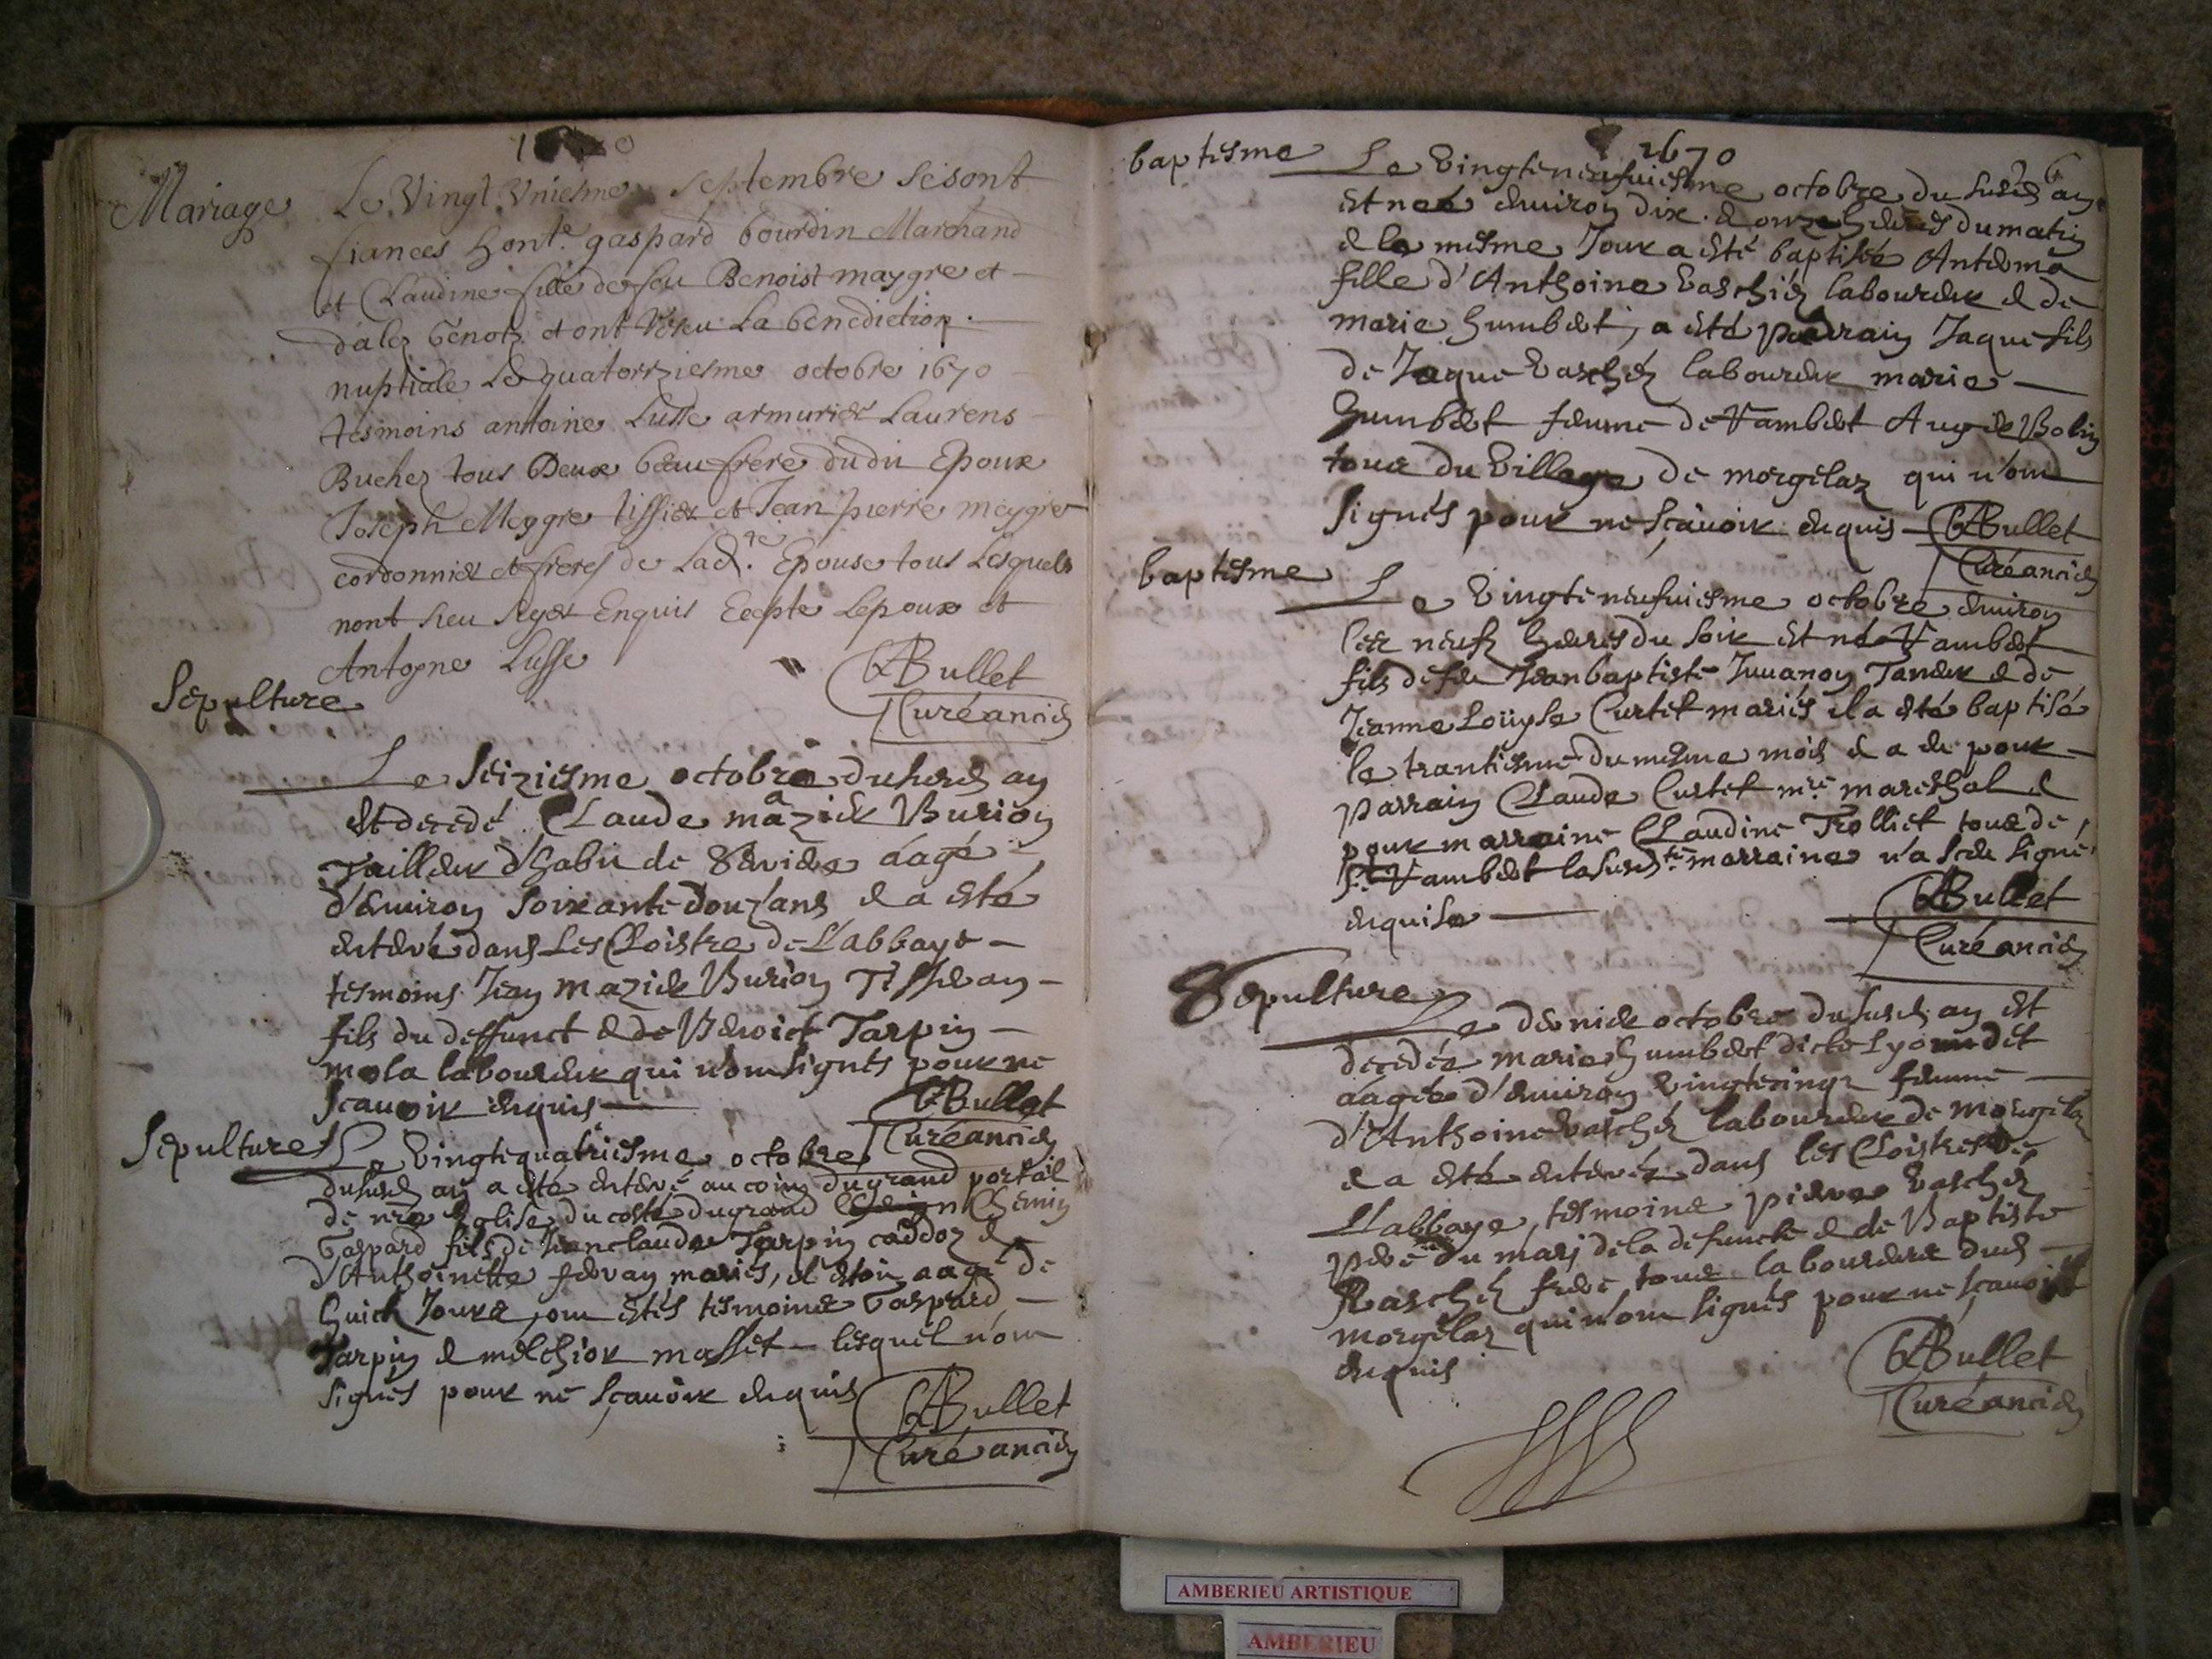 1670
Mariage Le Vingt Vniesme septembre se sont
fiances hont.e gaspard bourdin Marchand
et Claudine fille de feu Benoist maygre et
genoz et ont Reseu La benediction
nuptiale Le quatorziesme octobre 1670
tesmoins antoine Lusse armurier Laurens
Buchez tous Deux beaufrere dudit Epoux
Joseph Meygre tissier et Jean pierre meygre
cordonnier et freres de Lad.te Epouse tous Lesquels
nont sceu signer Enquis Epoux et
Antoyne Lusse
GBullet
Curé ancien
Sepulture
Le seiziesme octobre du susd an
est decedé Claude mazier Burion
Tailleur d'habit de aagé
d'enuiron soixante douz ans & a esté
enterré dans Les Cloistre de L'abbaye
tesmoins Jean mazier Burion Tisseran
fils du deffunct & de Benoict Tarpin
mola laboureur qui n'ont signés pour ne
scauoir enquis
GBullet
Curé ancien
Sepulture Le Vingt & quatriesme octobre
du susd an a esté enterré au coing du grand portail
de nre Eglise du costé du grand Chemin
Gaspard fils de Jean claude Tarpin caddoz &
d'Anthoinette ferran mariés, il estoit aagé de
huict Jours, ont estés tesmoins Gaspard
Tarpin & melchior masset lesquel n'ont
signés pour ne sçauoir enquis
GBullet
Curé ancien
1670
baptisme Le Vingt & neufuiesme octobre du susd an
est neé enuiron dix & onze heures du matin
& le mesme Jour a esté baptisée Anthema
fille d'Anthoine Vaschier laboureur & de
marie humbert, a esté parrain Jaque fils
de Jaque Vascher laboureur marie
humbert femme de Rambert Auger Bolin
tous du Village de morgelaz qui n'ont
signés pour ne sçauoir enquis GBullet
Curé ancien
baptisme Le Vingt & neufuiesme octobre enuiron
les neufz heures du soir est né Rambert
fils de feu Jean baptiste Juuanon Taneur & de
Jeanne Loüyse Curtet mariés il a esté baptisé
le trantiesme du mesme mois & a eu pour
parrain Claude Curtet m.re mareschal &
pour marraine Claudine Trolliet tous de
S.t Rambert la susd.te marraine n'a sceu signé
enquise
GBullet
Curé ancien
Sepulture
Le dernier octobre du susd. an est
decedée marie humbert dicte Lyonn det
aagée d'enuiron Vingt & cinqz femme
d'Anthoine Vascher laboureur de Morgelaz
& a esté enterrée dans les Cloistres de
L'abbaye, tesmoins pierre Vascher
pere du mary de la defuncte & de Baptiste
Vascher frere tous laboureurs dud
morgelaz qui n'ont signés pour ne sçauoir
enquis
GBullet
Curé ancien
AMBERIEU ARTISTIQUE
AMBERIEU